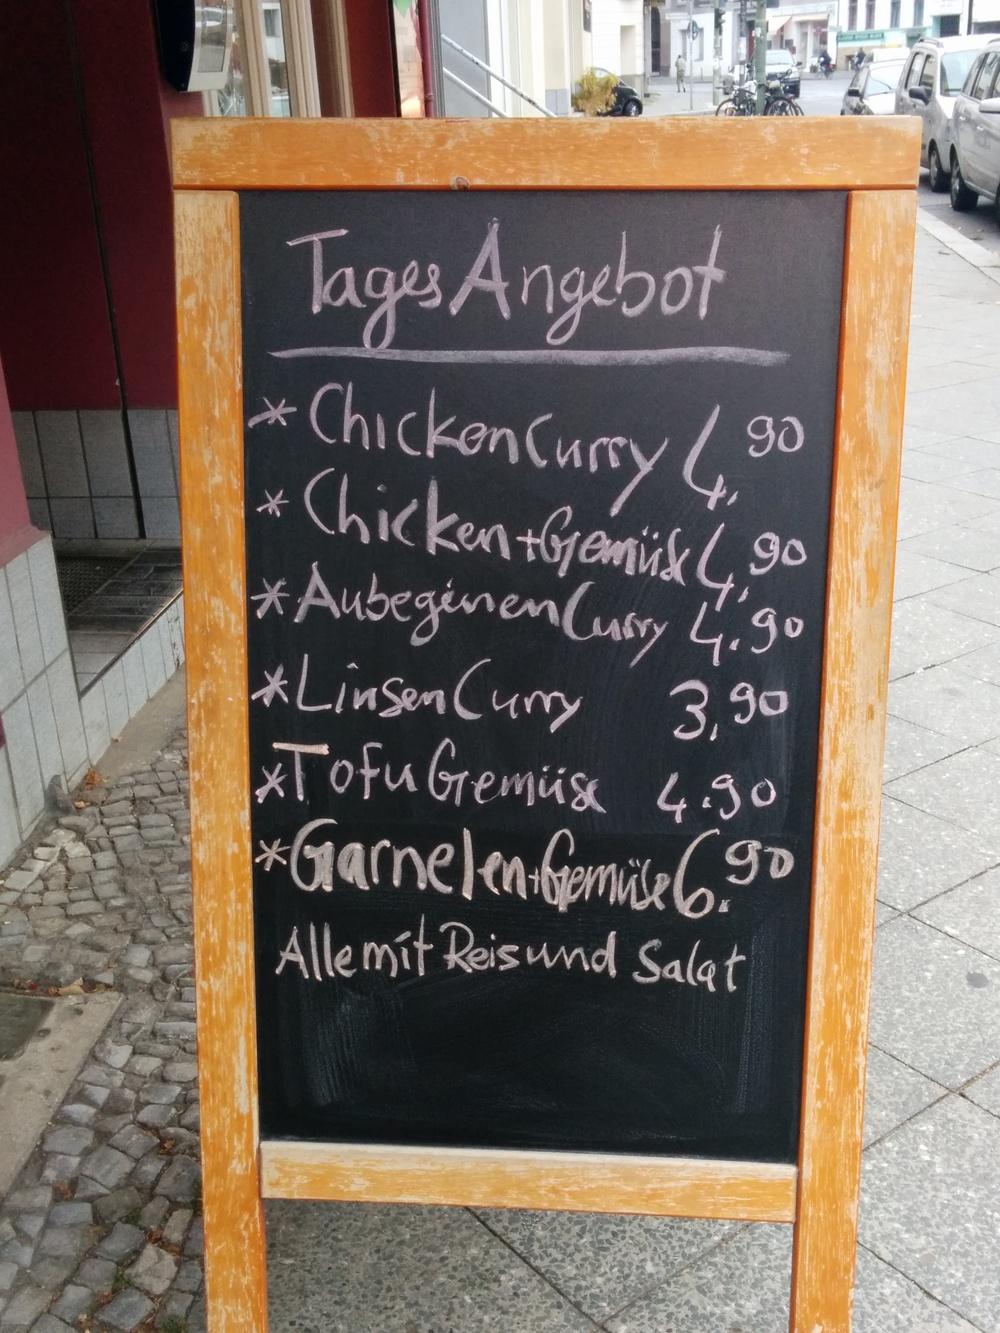 Tages Angebot
* Chicken Curry 4,90
* Chicken + Gemüse 4,90
* Aubeginen Curry 4.90
* Linsen Curry 3,90
* Tofu Gemüse 4.90
* Garnelen + Gemüse 6.90
Alle mit Reis und Salat